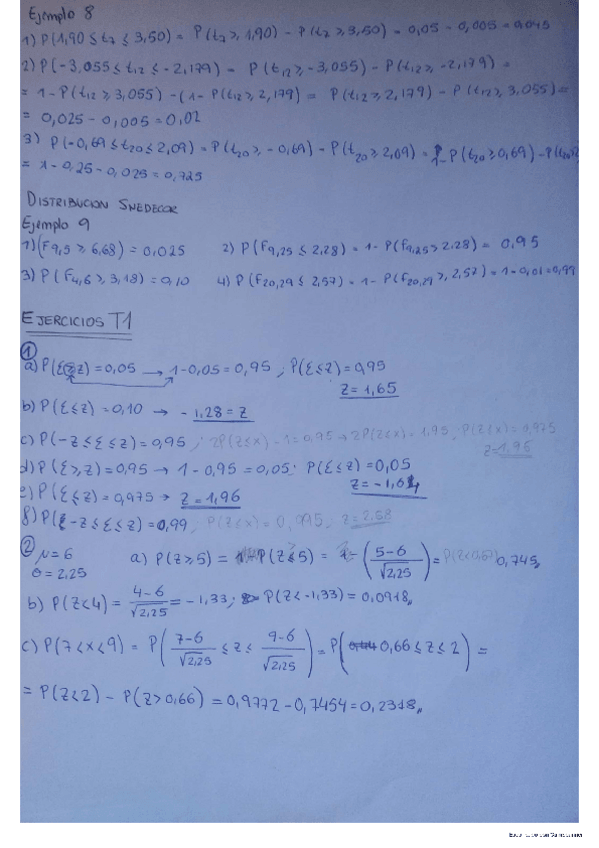 Ejemplo 8
1) P(1,90 ≤ t7 ≤ 3,50) = P(t7 ≥ 1,90) - P(t7 ≥ 3,50) = 0,05 - 0,005 = 0,045
2) P(-3,055 ≤ t12 ≤ -2,179) = P(t12 ≥ -3,055) - P(t12 ≥ -2,179) =
= 1 - P(t12 ≥ 3,055) - (1 - P(t12 ≥ 2,179) = P(t12 ≥ 2,179) - P(t12 ≥ 3,055) =
= 0,025 - 0,005 = 0,02
3) P(-0,69 ≤ t20 ≤ 2,09) = P(t20 ≥ -0,69) - P(t20 ≥ 2,09) = 1 - P(t20 ≥ 0,69) - P(t20 ≥
= 1 - 0,25 - 0,025 = 0,725
DISTRIBUCION SNEDECOR
Ejemplo 9
1) (F9,5 ≥ 6,68) = 0,025 2) P(F9,25 ≤ 2,28) = 1 - P(F9,25 ≥ 2,28) = 0,95
3) P(F4,6 ≥ 3,18) = 0,10 4) P(F20,29 ≤ 2,57) = 1 - P(F20,29 ≥ 2,57) = 1 - 0,01 = 0,99
EJERCICIOS T1
①
a) P(ξ ≥ z) = 0,05 → 1 - 0,05 = 0,95 ; P(ξ ≤ z) = 0,95
z = 1,65
b) P(ξ ≤ z) = 0,10 → - 1,28 = z
c) P(-z ≤ ξ ≤ z) = 0,95 ; 2P(z ≤ x) - 1 = 0,95 → 2P(z ≤ x) = 1,95 ; P(z ≤ x) = 0,975
z = 1,96
d) P(ξ ≥ z) = 0,95 → 1 - 0,95 = 0,05 ; P(ξ ≤ z) = 0,05
z = -1,64
e) P(ξ ≤ z) = 0,975 → z = 1,96
f) P(-z ≤ ξ ≤ z) = 0,99 ; P(z ≤ x) = 0,995 ; z = 2,58
② μ = 6 a) P(z ≥ 5) = P(z ≤ 5) = (5-6/√2,25) = P(z < 0,67) 0,745
σ = 2,25
b) P(z < 4) = 4-6/√2,25 = -1,33 ; P(z < -1,33) = 0,0918
c) P(7 < x < 9) = P(7-6/√2,25 ≤ z ≤ 9-6/√2,25) = P(0,66 ≤ z ≤ 2) =
= P(z < 2) - P(z > 0,66) = 0,9772 - 0,7454 = 0,2318